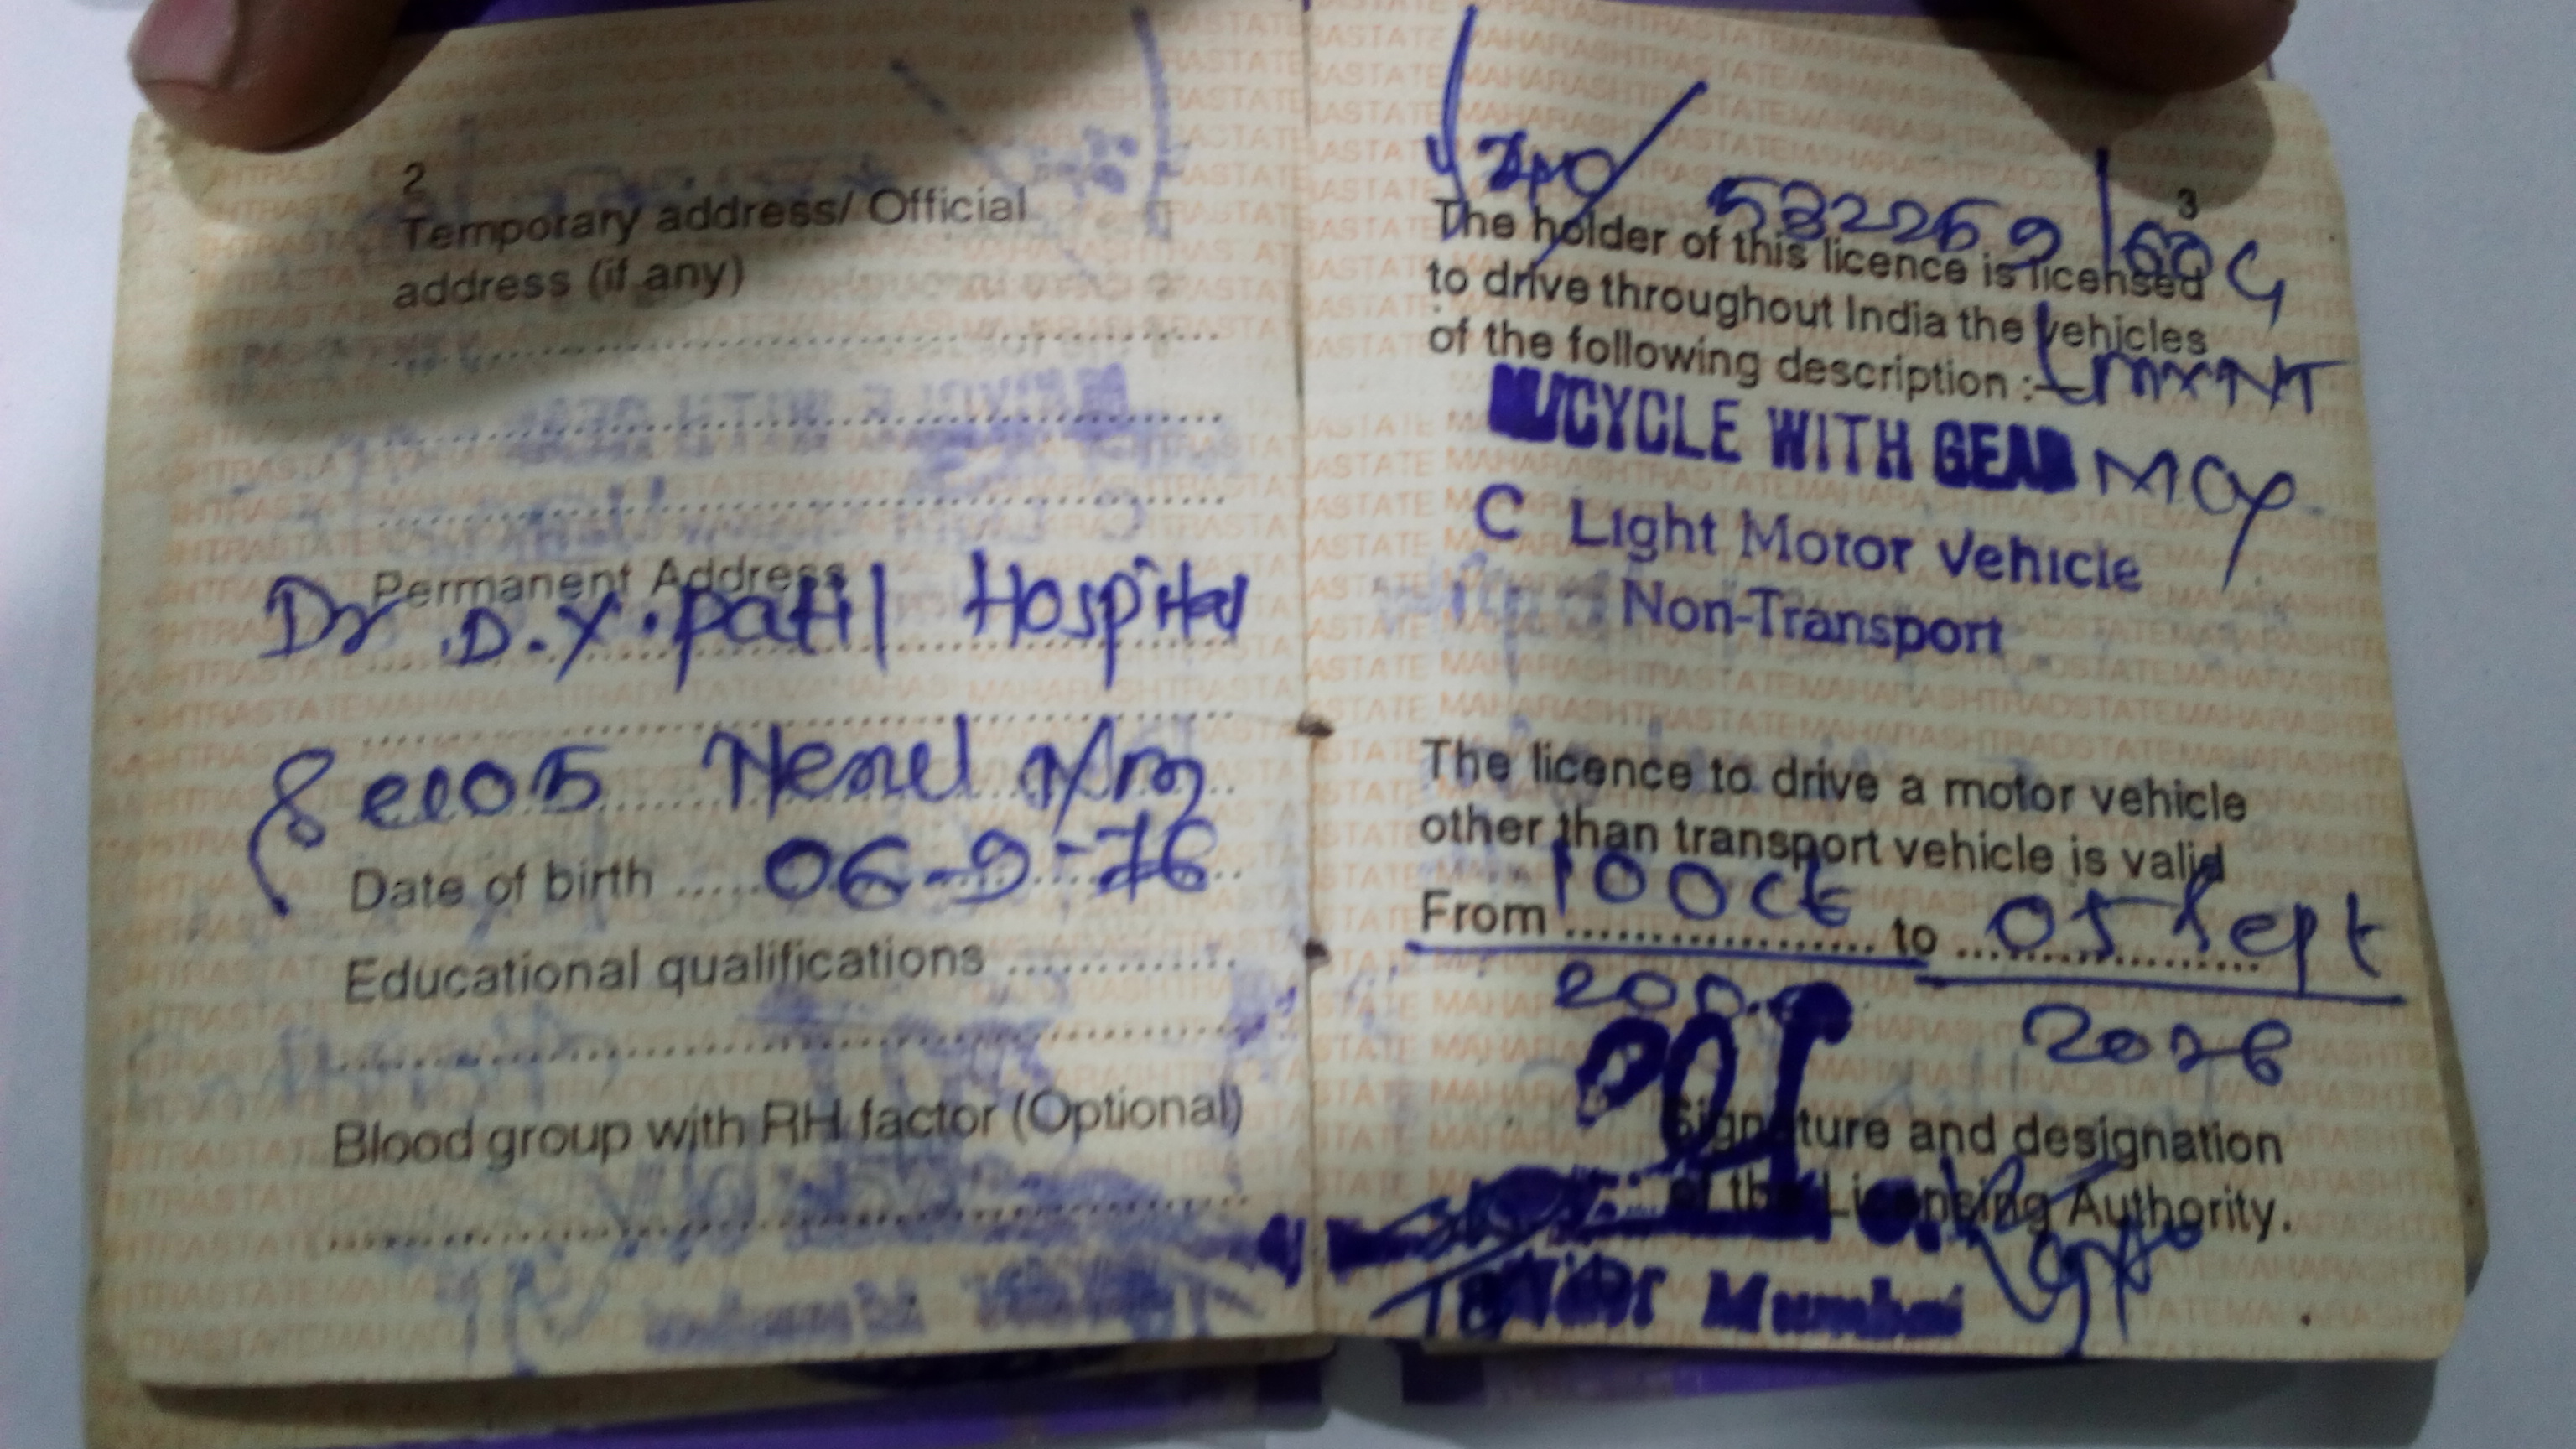 2
Temporary address/ Official
address (if any)
Permanent Address
Dr .D.Y.Patil Hospital
Date of birth ..... 06-9-76
Educational qualifications
Blood group with RH factor (Optional)
3
The holder of this licence is licensed
to drive throughout India the vehicles
of the following description :-
CYCLE WITH GEAR MCY
C Light Motor Vehicle
Non-Transport
The licence to drive a motor vehicle
other than transport vehicle is valid
From 10 Oct to 05 Sept
2026
Signature and designation
of the Licensing Authority.
Mumbai